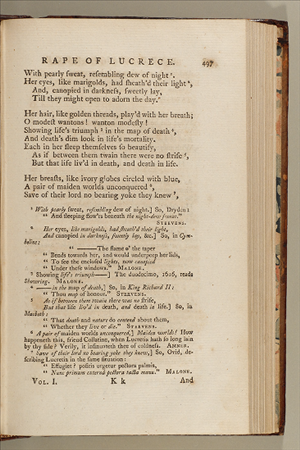 RAPE OF LUCRECE. 497
With pearly ſweat, reſembling dew of night ¹.
Her eyes, like marigolds, had ſheath'd their light ²,
And, canopied in darkneſs, ſweetly lay,
Till they might open to adorn the day.
Her hair, like golden threads, play'd with her breath;
O modeſt wantons! wanton modeſty!
Showing life's triumph ³ in the map of death ⁴,
And death's dim look in life's mortality.
Each in her ſleep themſelves ſo beautify,
As if between them twain there were no ſtrife ⁵,
But that life liv'd in death, and death in life.
Her breaſts, like ivory globes circled with blue,
A pair of maiden worlds unconquered ⁶,
Save of their lord no bearing yoke they knew ⁷,
¹ With pearly ſweat, reſembling dew of night.] So, Dryden:
" And ſleeping flow'rs beneath the night-dew ſweat."
STEEVENS.
² Her eyes, like marigolds, had ſheath'd their light,
And canopied in darkneſs, ſweetly lay, &c.] So, in Cym-
beline:
" ——The flame o' the taper
" Bends towards her, and would underpeep her lids,
" To ſee the encloſed lights, now canopied
" Under theſe windows." MALONE.
³ Showing life's triumph——] The duodecimo, 1616, reads
Showering. MALONE.
⁴ ——in the map of death,] So, in King Richard II:
" Thou map of honour." STEEVENS.
⁵ As if between them twain there was no ſtrife,
But that life liv'd in death, and death in life.] So, in
Macbeth:
" That death and nature do contend about them,
" Whether they live or die." STEEVENS.
⁶ A pair of maiden worlds unconquered,] Maiden worlds! How
happeneth this, friend Collatine, when Lucretia hath ſo long lain
by thy ſide? Verily, it inſinuateth thee of coldneſs. AMNER.
⁷ Save of their lord no bearing yoke they knew,] So, Ovid, de-
ſcribing Lucretia in the ſame ſituation:
" Effugiet? poſitis urgetur pectora palmis,
" Nunc primum externâ pectora tacta manu." MALONE.
VOL. I. K k And